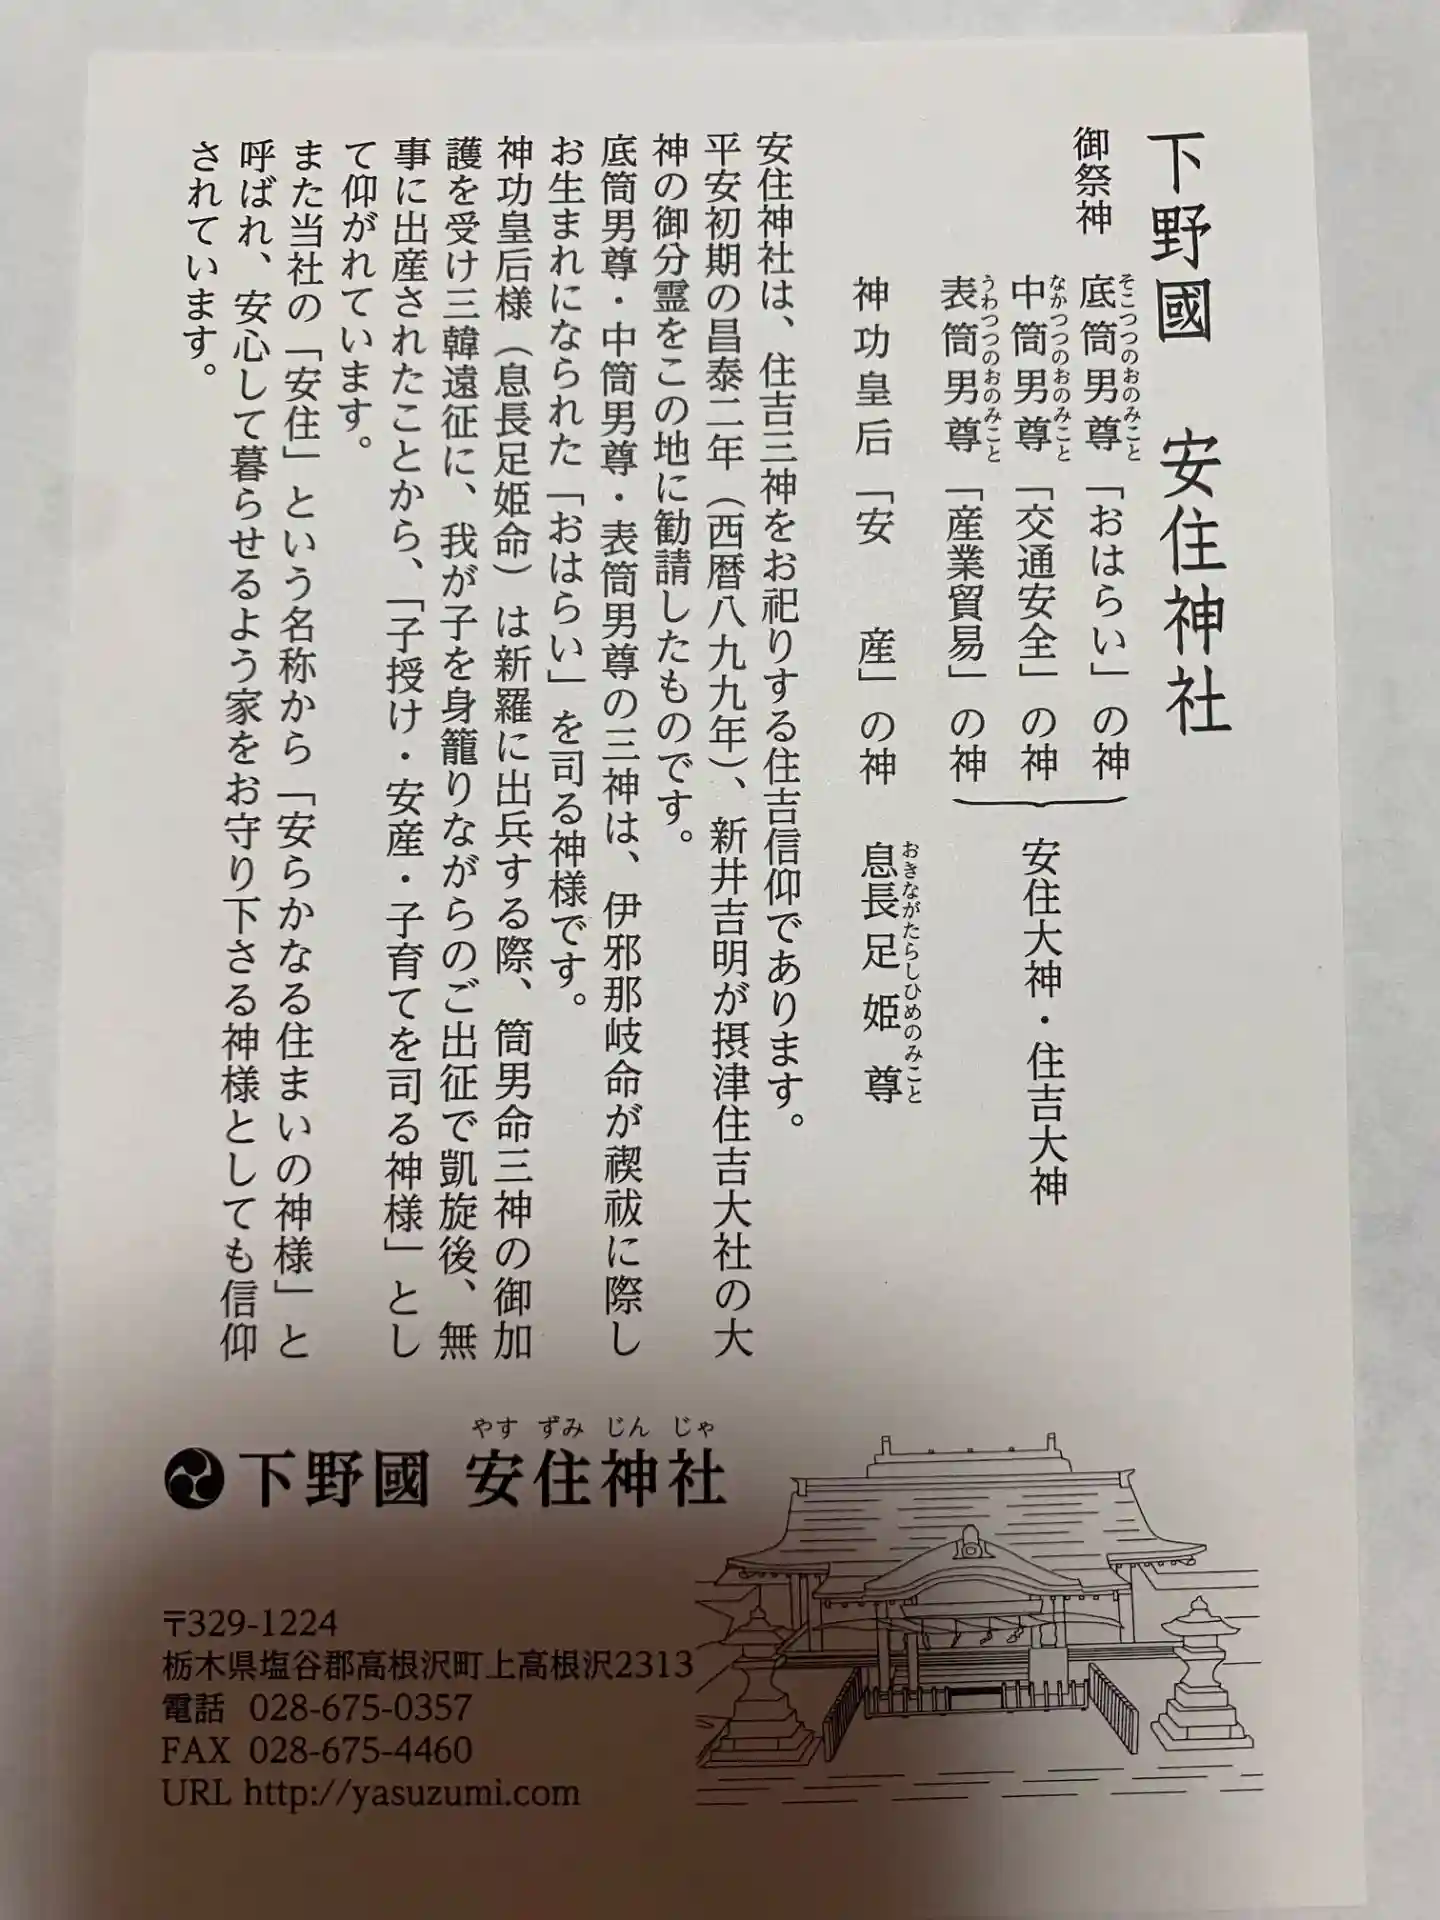 下野國 安住神社
御祭神
底筒男尊「おはらい」の神
そこつつのおのみこと
中筒男尊「交通安全」の神
なかつつのおのみこと
表筒男尊「産業貿易」の神
うわつつのおのみこと
安住大神・住吉大神
神功皇后「安 産」の神 息長足姫尊
おきながたらしひめのみこと
安住神社は、住吉三神をお祀りする住吉信仰であります。
平安初期の昌泰二年（西暦八九九年）、新井吉明が摂津住吉大社の大
神の御分霊をこの地に勧請したものです。
底筒男尊・中筒男尊・表筒男尊の三神は、伊邪那岐命が禊祓に際し
お生まれになられた「おはらい」を司る神様です。
神功皇后様（息長足姫命）は新羅に出兵する際、筒男命三神の御加
護を受け三韓遠征に、我が子を身籠りながらのご出征で凱旋後、無
事に出産されたことから、「子授け・安産・子育てを司る神様」とし
て仰がれています。
また当社の「安住」という名称から「安らかなる住まいの神様」と
呼ばれ、安心して暮らせるよう家をお守り下さる神様としても信仰
されています。
やす ずみ じん じゃ
下野國 安住神社
〒329-1224
栃木県塩谷郡高根沢町上高根沢2313
電話 028-675-0357
FAX 028-675-4460
URL http://yasuzumi.com